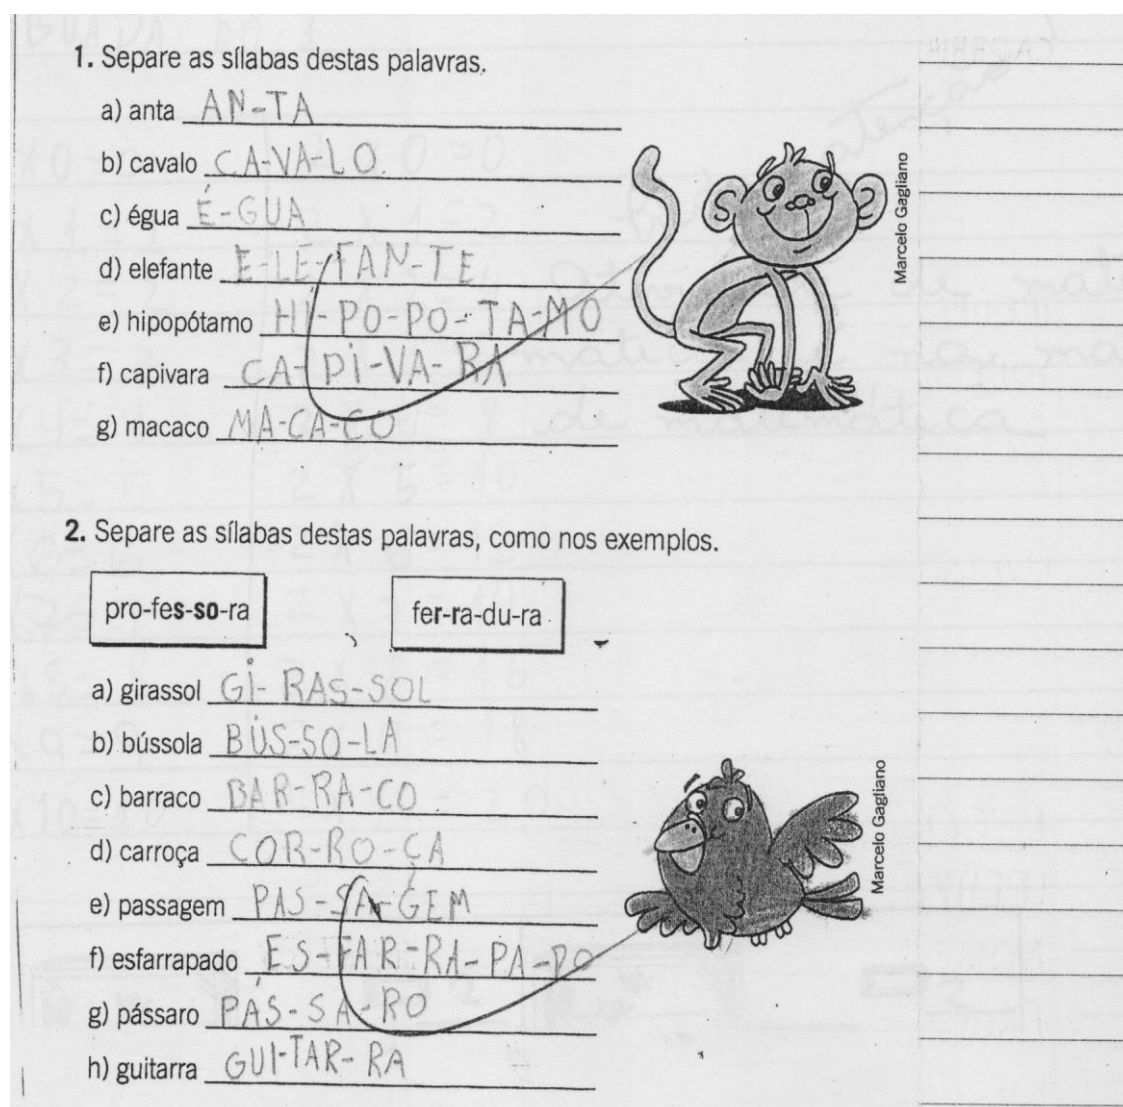 1. Separe as sílabas destas palavras.
a) anta AN-TA
b) cavalo CA-VA-LO
c) égua É-GUA
d) elefante E LE-FAN-TE
e) hipopótamo HI-PO-PO-TA-MO
f) capivara CA-Pi-VA-RA
g) macaco MA-CA-CO
Marcelo Gagliano
2. Separe as sílabas destas palavras, como nos exemplos.
pro-fes-so-ra fer-ra-du-ra
a) girassol Gi-RAS-SOL
b) bússola BÚS-SO-LA
c) barraco BAR-RA-CO
d) carroça COR-RO-ÇA
e) passagem PAS-SA-GEM
f) esfarrapado ES-FAR-RA-PA-DO
g) pássaro PÁS-SA-RO
h) guitarra GUI-TAR-RA
Marcelo Gagliano